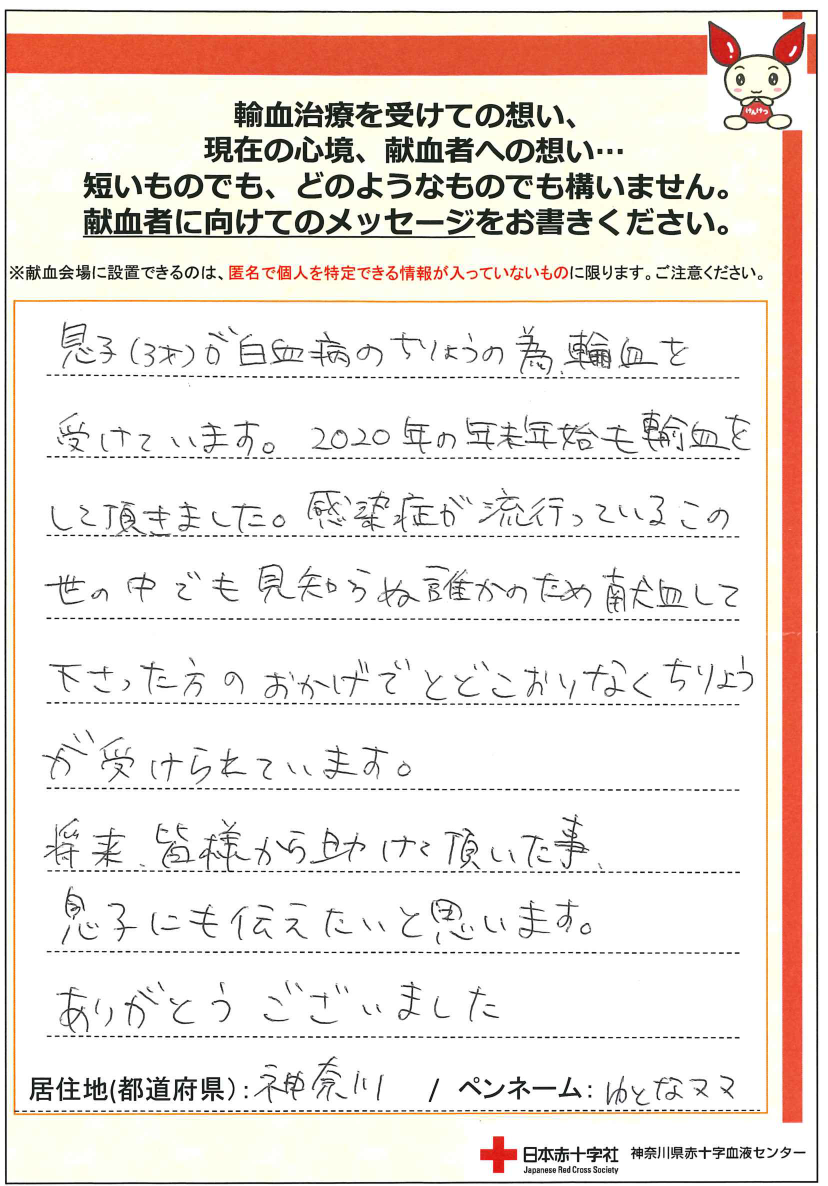 けんけつ
輸血治療を受けての想い、
現在の心境、献血者への想い…
短いものでも、どのようなものでも構いません。
献血者に向けてのメッセージをお書きください。
※献血会場に設置できるのは、匿名で個人を特定できる情報が入っていないものに限ります。ご注意ください。
息子(3才)が白血病のちりょうの為、輸血を
受けています。2020年の年末年始も輸血を
して頂きました。感染症が流行っているこの
世の中でも見知らぬ誰かのため献血して
下さった方のおかげでとどこおりなくちりょう
が受けられています。
将来、皆様から助けて頂いた事、
息子にも伝えたいと思います。
ありがとうございました
居住地(都道府県):神奈川 / ペンネーム:ゆとなママ
日本赤十字社 神奈川県赤十字血液センター
Japanese Red Cross Society